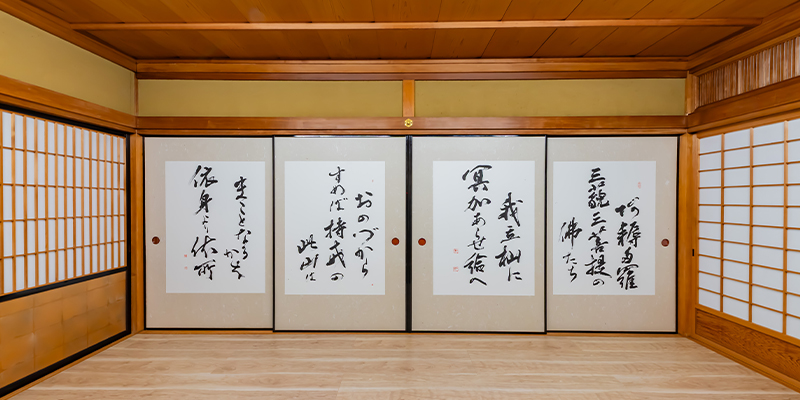 阿耨多羅
三藐三菩提の
佛たち
我立杣に
冥加あらせ給へ
おのづから
すめば持戒の
此山は
まことなる
かな
依身より依所